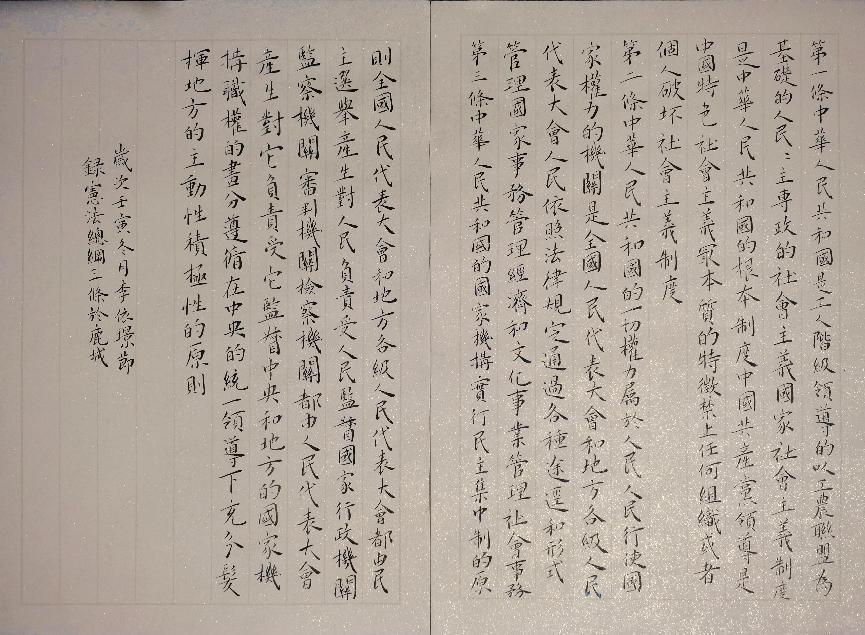 第一條中華人民共和國是工人階級領導的以工農聯盟為
基礎的人民〻主專政的社會主義國家社會主義制度
是中華人民共和國的根本制度中國共產黨領導是
中國特色社會主義最本質的特徵禁止任何組織或者
個人破坏社會主義制度
第二條中華人民共和國的一切權力屬於人民人民行使國
家權力的機關是全國人民代表大會和地方各級人民
代表大會人民依照法律規定通過各種途逕和形式
管理國家事務管理經濟和文化事業管理社會事務
第三條中華人民共和國的國家機構實行民主集中制的原
則全國人民代表大會和地方各級人民代表大會都由民
主選舉產生對人民負責受人民監督國家行政機關
監察機關審判機關檢察機關都由人民代表大會
產生對它負責受它監督中央和地方的國家機
構職權的畫分遵循在中央的統一領導下充分髮
揮地方的主動性積極性的原則
歲次壬寅冬月李依璟節
録憲法總綱三條於鹿城